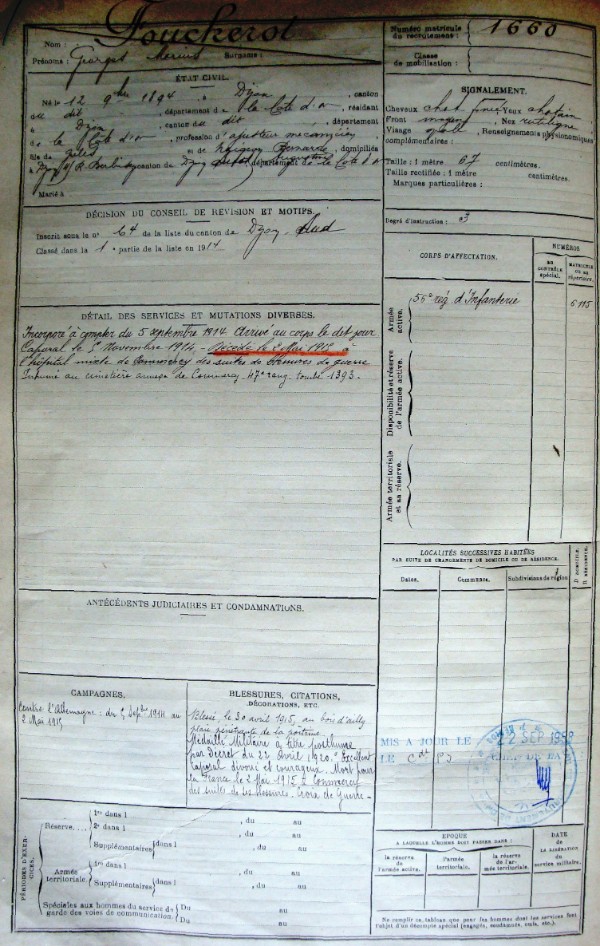 Nom : Fouckerot
Prénoms : Georges Surnoms :
Numéro matricule du recrutement : 1660
Classe de mobilisation :
ÉTAT CIVIL.
Né le 12 9bre 1894, à Dijon, canton
du dit, département de la Côte d'or, résidant
à Dijon, canton du dit, département
de la Côte d'or, profession d'ajusteur mécanicien
fils de et de Bernarde, domiciliés
canton de Dijon département de la Côte d'or
Marié à
SIGNALEMENT.
Cheveux chat Yeux
Front moyen, Nez rectiligne
Visage ovale, Renseignements physionomiques
complémentaires :
Taille : 1 mètre 67 centimètres.
Taille rectifiée : 1 mètre centimètres.
Marques particulières :
Degré d'instruction : 3
DÉCISION DU CONSEIL DE RÉVISION ET MOTIFS.
Inscrit sous le n° 64 de la liste du canton de Dijon Sud
Classé dans la 1e partie de la liste en 1914
DÉTAIL DES SERVICES ET MUTATIONS DIVERSES.
Incorporé à compter du 5 septembre 1914. Arrivé au corps le dit jour
Caporal le 5 Novembre 1914. Décédé le 2 Mai 1915 à
l'hôpital mixte de Commercy des suites de blessures de guerre
Inhumé au cimetière de Commercy. 47e rang. tombe 1393.
CORPS D'AFFECTATION.
NUMÉROS
AU CONTRÔLE spécial.
MATRICULE OU AU répertoire.
Armée active.
56e rég d'Infanterie
Disponibilité et réserve de l'armée active.
Armée territoriale et sa réserve.
LOCALITÉS SUCCESSIVES HABITÉES
PAR SUITE DE CHANGEMENTS DE DOMICILE OU DE RÉSIDENCE.
Dates.
Communes.
Subdivisions de région.
D. DOMICILE.
R. RÉSIDENCE.
ANTÉCÉDENTS JUDICIAIRES ET CONDAMNATIONS.
CAMPAGNES.
Contre l'Allemagne : du 5 Septbre 1914 au
2 Mai 1915
BLESSURES, CITATIONS,
DÉCORATIONS, ETC.
Blessé le 30 avril 1915, au bois d'ailly
plaie pénétrante de la poitrine.
Médaille Militaire à titre posthume
par Décret du 22 Avril 1920. "Excellent
caporal dévoué et courageux. Mort pour
la France le 2 Mai 1915 à Commercy
des suites de ses blessures. Croix de Guerre."
MIS A JOUR LE 22 SEP
LE
PÉRIODES D'EXERCICES.
Réserve....
1re dans l , du au
2e dans l , du au
Supplémentaires dans l , du au
Armée territoriale.
1re) dans l , du au
Supplémentaires dans l , du au
Spéciales aux hommes du service de garde des voies de communication. Du au
Du au
ÉPOQUE
A LAQUELLE L'HOMME DOIT PASSER DANS :
la réserve de l'armée active.
l'armée territoriale.
la réserve de l'armée territoriale.
DATE
DE LA LIBÉRATION du service militaire.
Ne remplir ce tableau que pour les hommes dont les services font
l'objet d'un décompte spécial (engagés, condamnés, omis, etc.).